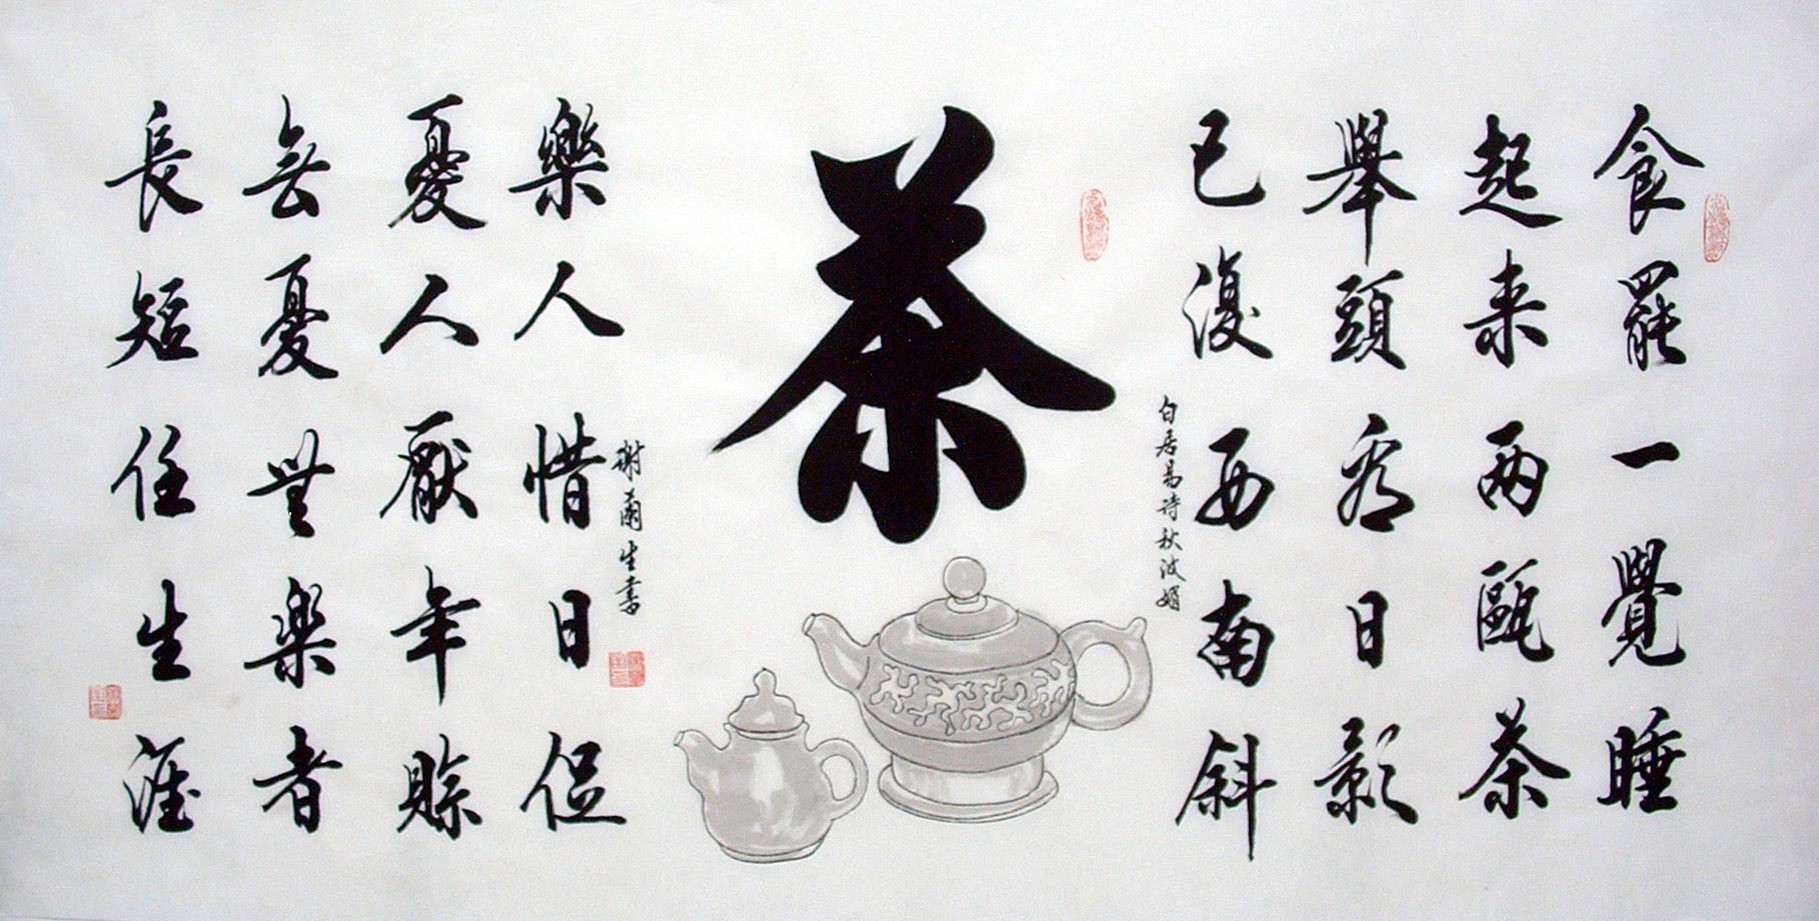 食罷一覺睡
起来兩甌茶
舉頭看日影
已復西南斜
白居易诗秋波媚
茶
樂人惜日促
憂人厭年賒
無憂無樂者
長短任生涯
謝蘭生書